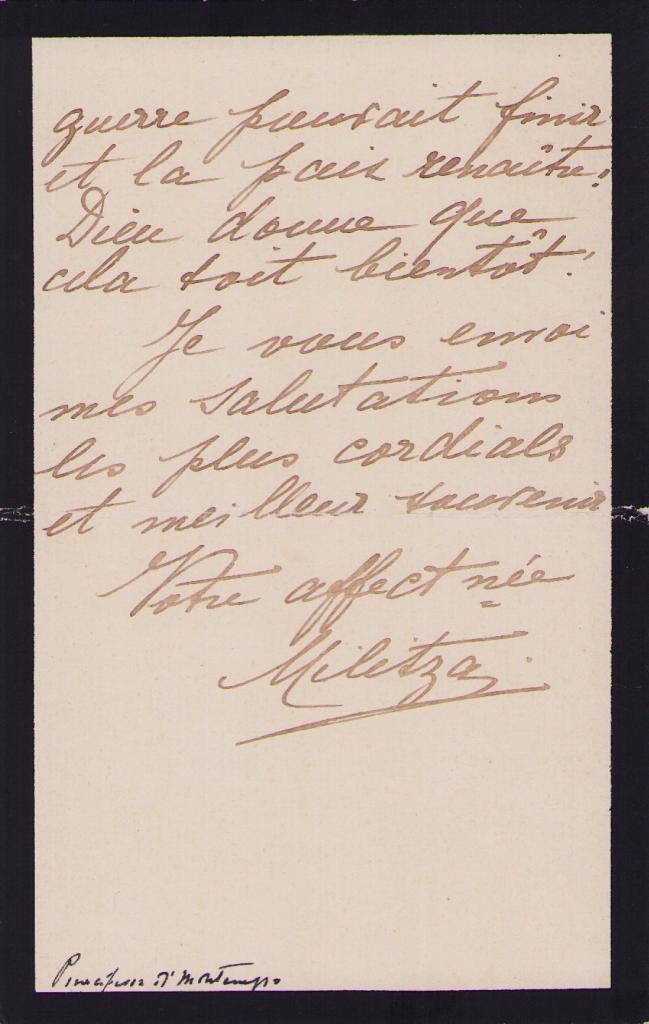 guerre pouvait finir
et la paix renaître!
Dieu donne que
cela soit bientôt!
Je vous envoi
mes salutations
les plus cordials
et meilleur souvenir
Votre affectnée
Militza.
Principessa di Montenegro